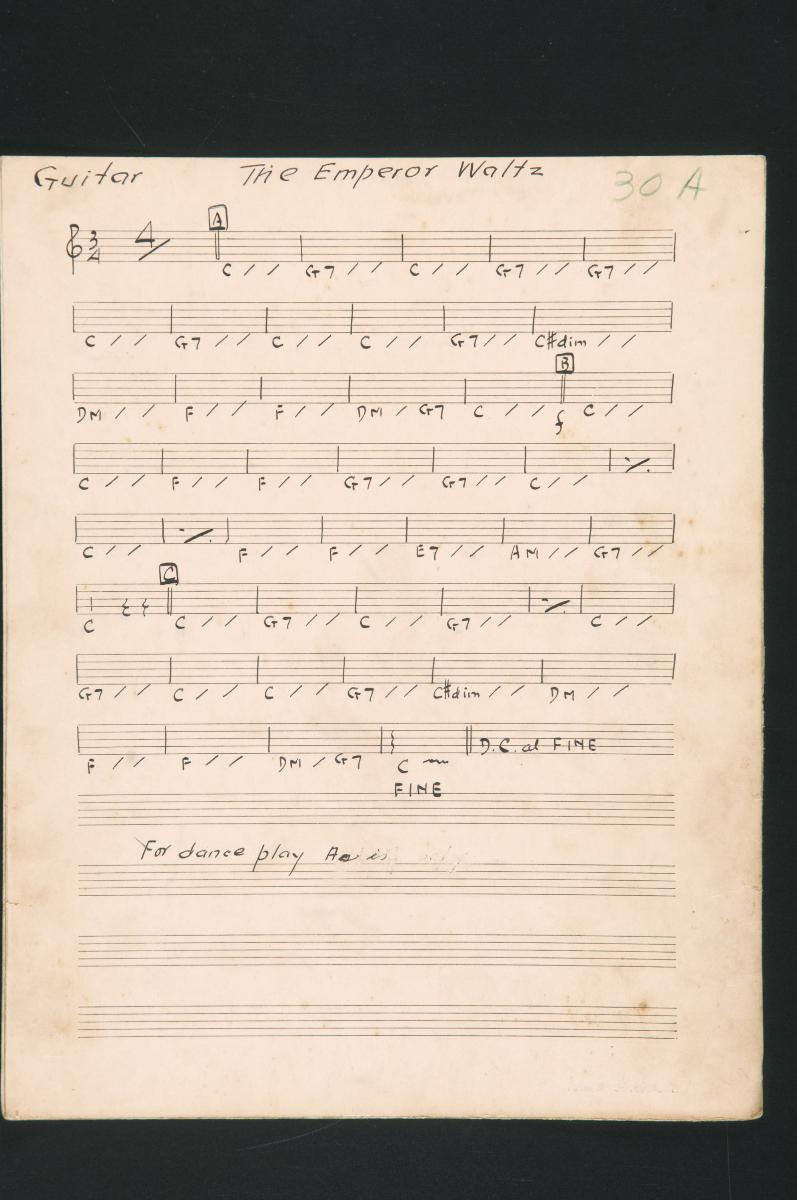 Guitar The Emperor Waltz 30 A
3/4 4 A
C / / G7 / / C / / G7 / / G7 / /
C / / G7 / / C / / C / / G7 / / C#dim / /
B
DM / / F / / F / / DM / G7 C / / f C / /
C / / F / / F / / G7 / / G7 / / C / / ·/.
C / / ·/. F / / F / / E7 / / AM / / G7 / /
C
C C / / G7 / / C / / G7 / / ·/. C / /
G7 / / C / / C / / G7 / / C#dim / / DM / /
D.C. al FINE
F / / F / / DM / G7 C
FINE
For dance play As is